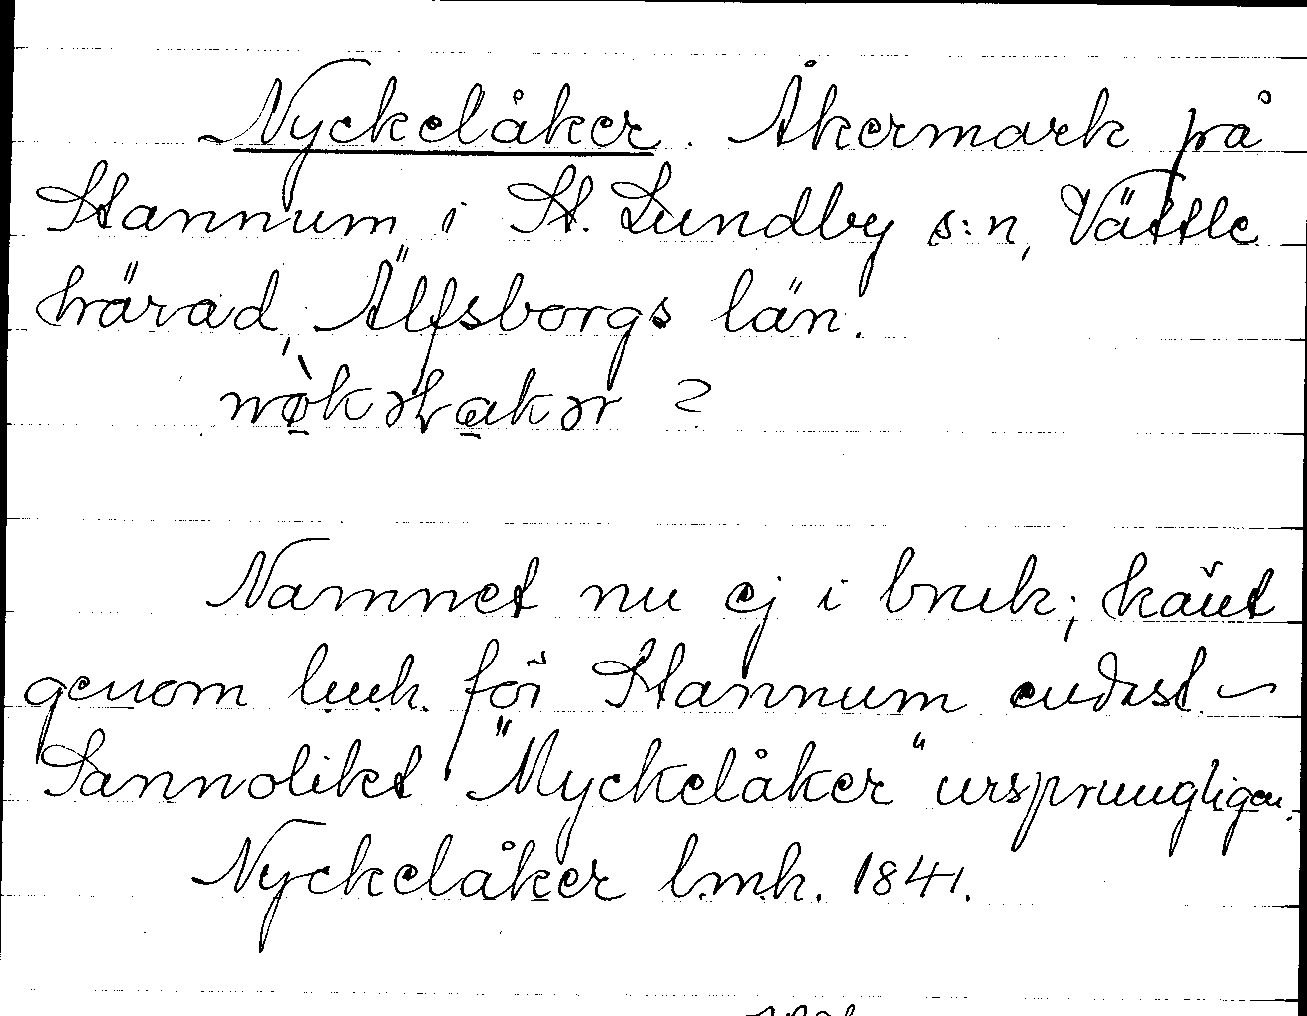 Nyckelåker. Åkermark på
Stannum i St. Lundby s:n, Vättle
härad, Älfsborgs län.
?
Namnet nu ej i bruk; känt
genom lmh. för Stannum endast –
Sannolikt "Myckelåker" ursprungligen.
Nyckelåker lmh. 1841.